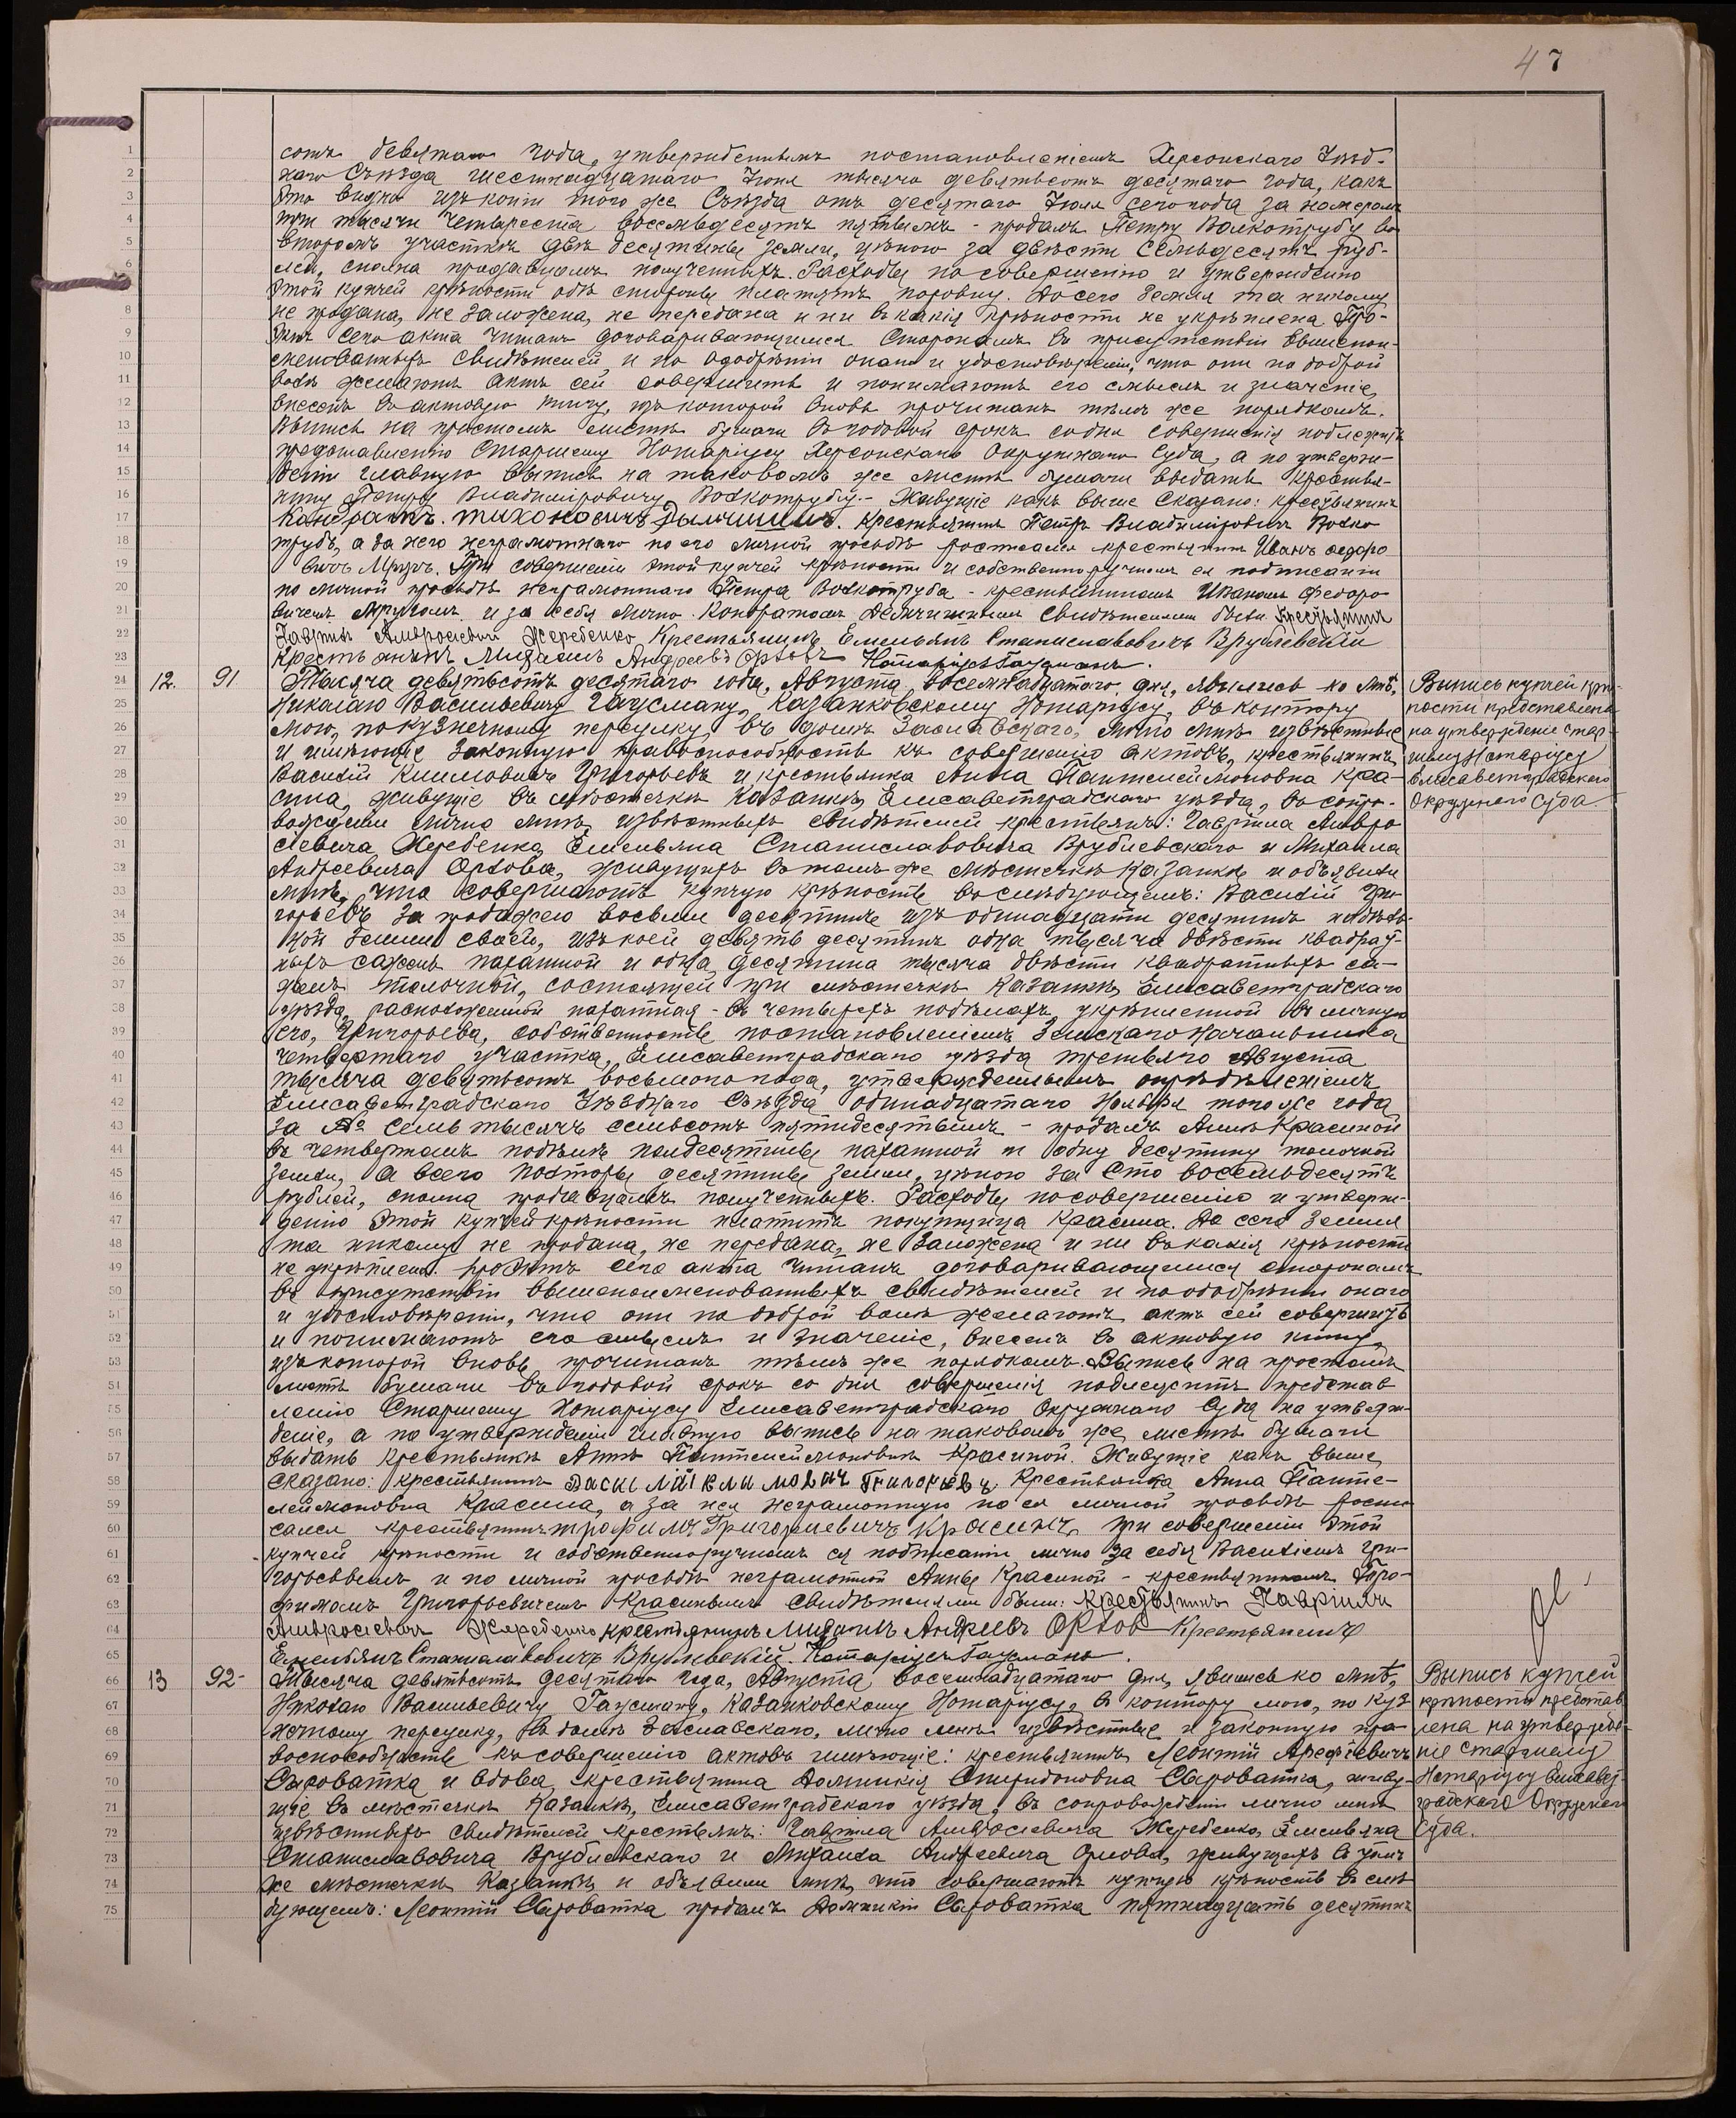 47
сотъ девятаго года, утвержденнымъ постановленіемъ Херсонскаго Уѣзд-
наго Съѣзда шестнадцатаго Іюня тысяча девятьсотъ десятаго года, какъ
это видно изъ копіи того же Съѣзда отъ десятаго Іюля сего года за номеромъ
три тысячи четыреста восемьдесятъ пятымъ - продалъ Петру Волкотрубу во
второмъ участкѣ двѣ десятины земли, цѣною за двѣсти семьдесятъ руб-
лей, сполна продавцомъ полученныхъ. Расходы по совершенію и утвержденію
этой купчей крѣпости обѣ стороны платятъ поровну. До сего земля та никому
не продана, не заложена, не передана и ни въ какія крѣпости не укрѣплена. Про-
эктъ сего акта читанъ договаривающимся сторонамъ въ присутствіи вышепои-
менованныхъ свидѣтелей и по одобреніи онаго и удостовѣреніи, что они по доброй
волѣ желаютъ актъ сей совершить и понимаютъ его смыслъ и значеніе,
внесенъ въ актовую книгу, изъ которой вновь прочитанъ тѣмъ же порядкомъ.
Выпись на простомъ листѣ бумаги въ годовой срокъ со дня совершенія подлежитъ
представленію Старшему Нотаріусу Херсонскаго Окружнаго Суда, а по утверж-
деніи главную выпись на таковомъ же листѣ бумаги выдать крестья-
нину Петру Владиміровичу Волкотрубу. - Живущіе какъ выше сказано: крестьянинъ
Кандратъ Тихоновичъ Крестьянинъ Петръ Владиміровичъ Волко
трубъ, а за него неграмотнаго по его личной просьбѣ росписался крестьянинъ Иванъ Федоро
вичъ Мруръ. При совершеніи этой купчей крѣпости и собственноручномъ ея подписаніи
по личной просьбѣ неграмотнаго Петра Волкотруба - крестьяниномъ Иваномъ Федоро
вичемъ и за себя лично Кондратомъ свидѣтелями были: Крестьянинъ
Гаврiилъ Амвросіевичъ Жеребенко Крестьянинъ Емельянъ Станиславовичъ Врублевскій
Крестьянинъ Михаилъ Андреевъ Орловъ Нотаріусъ Гаусманъ.
12. 91 Тысяча девятьсотъ десятаго года, Августа восемнадцатаго дня, явились ко мнѣ,
Николаю Васильевичу Гаусману, Казанковскому Нотаріусу, въ контору
мою, по Кузнечному переулку, въ домѣ Заславскаго, лично мнѣ извѣстные
и имѣющіе законную правоспособность къ совершенію актовъ, крестьянинъ
Василій Климовичъ Григорьевъ и крестьянка Анна Пантелеймоновна Кра-
сина, живущіе въ мѣстечкѣ Казанкѣ, Елисаветградскаго уѣзда, въ сопро-
вожденіи лично мнѣ извѣстныхъ свидѣтелей крестьянъ: Гавріила Амвро
сіевича Жеребенка, Емельяна Станиславовича Врублевскаго и Михаила
Андреевича Орлова, живущихъ въ томъ же мѣстечкѣ Казанкѣ и объявили
мнѣ, что совершаютъ купчую крѣпость въ слѣдующемъ: Василій Гри
горьевъ за продажею восьми десятинъ изъ одинадцати десятинъ надѣль
ной земли своей, изъ коей девять десятинъ одна тысяча двѣсти квадрат-
ныхъ саженъ пахатной и одна десятина тысяча двѣсти квадратныхъ са-
женъ толочной, состоящей при мѣстечкѣ Казанкѣ, Елисаветградскаго
уѣзда, расположенной пахатная - въ четырехъ подѣлахъ, укрѣпленной въ личную
его, Григорьева, собственность постановленіемъ Земскаго Начальника
четвертаго участка, Елисаветградскаго уѣзда третьяго Августа
тысяча девятьсотъ восьмого года, утвержденнымъ опредѣленіемъ
Елисаветградскаго Уѣзднаго Съѣзда одинадцатаго Ноября того же года
за № семь тысячъ семьсотъ пятидесятымъ - продалъ Аннѣ Красиной
въ четвертомъ подѣлѣ полдесятины пахатной и одну десятину толочной
земли, а всего полторы десятины земли, цѣною за сто восемьдесятъ
рублей, сполна продавцомъ полученныхъ. Расходы по совершенію и утверж-
денію этой купчей крѣпости платитъ покупщица Красина. До сего земля
та никому не продана, не передана, не заложена и ни въ какія крѣпости
не укрѣплена. Проэктъ сего акта читанъ договаривающимся сторонамъ
въ присутствіи вышепоименованныхъ свидѣтелей и по одобреніи онаго
и удостовѣреніи, что они по доброй волѣ желаютъ актъ сей совершить
и понимаютъ его смыслъ и значеніе, внесенъ въ актовую книгу,
изъ которой вновь прочитанъ тѣмъ же порядкомъ. Выпись на простомъ
листѣ бумаги въ годовой срокъ со дня совершенія подлежитъ представ
ленію Старшему Нотаріусу Елисаветградскаго Окружнаго Суда на утверж-
деніе, а по утвержденіи главную выпись на таковомъ же листѣ бумаги
выдать крестьянкѣ Аннѣ Пантелеймоновнѣ Красиной. Живущіе какъ выше
сказано: крестьянинъ Василій Климовичъ Григорьевъ, Крестьянка Анна Панте-
леймоновна Красина, а за нея неграмотную по ея личной просьбѣ роспи
сался крестьянинъ Трофимъ Григорьевичъ Красинъ. При совершеніи этой
купчей крѣпости и собственноручномъ ея подписаніи лично за себя Василіемъ Гри-
горьевымъ и по личной просьбѣ неграмотной Анны Красиной - крестьяниномъ Торо-
фимомъ Григорьевичемъ Красинымъ свидѣтелями были: Крестьянинъ Гавріилъ
Амвросіевичъ Жеребенко крестьянинъ Михаилъ Андреевъ Орлов Крестьянинъ
Емельянъ Станиславовичъ Врублевскій. Нотаріусъ Гаусманъ.
13 92- Тысяча девятьсотъ десятаго года, Августа восемнадцатаго дня, явились ко мнѣ,
Николаю Васильевичу Гаусману, Казанковскому Нотаріусу, въ контору мою, по Куз
нечному переулку, въ домѣ Заславскаго, лично мнѣ извѣстные и законную пра-
воспособность къ совершенію актовъ имѣющіе: крестьянинъ Леонтій Арефіевичъ
Сыроватка и вдова крестьянина Домникія Спиридоновна Сыроватка, живу-
щіе въ мѣстечкѣ Казанкѣ, Елисаветградскаго уѣзда, въ сопровожденіи лично мнѣ
извѣстныхъ свидѣтелей крестьянъ: Гавріила Амвросіевича Жеребенко, Емельяна
Станиславовича Врублевскаго и Михаила Андреевича Орлова, живущихъ въ томъ
же мѣстечкѣ Казанкѣ и объявили мнѣ, что совершаютъ купчую крѣпость въ слѣ
дующемъ: Леонтій Сыроватка продалъ Домникіи Сыроватка пятнадцать десятинъ
Выпись купчей крѣ-
пости представлена
на утвержденіе стар-
шему Нотаріусу
Елисаветградскаго
Окружного Суда.
Выпись купчей
крѣпости представ
лена на утвержде-
ніе старшему
Нотаріусу Елисавет-
градскаго Окружнаго
Суда.